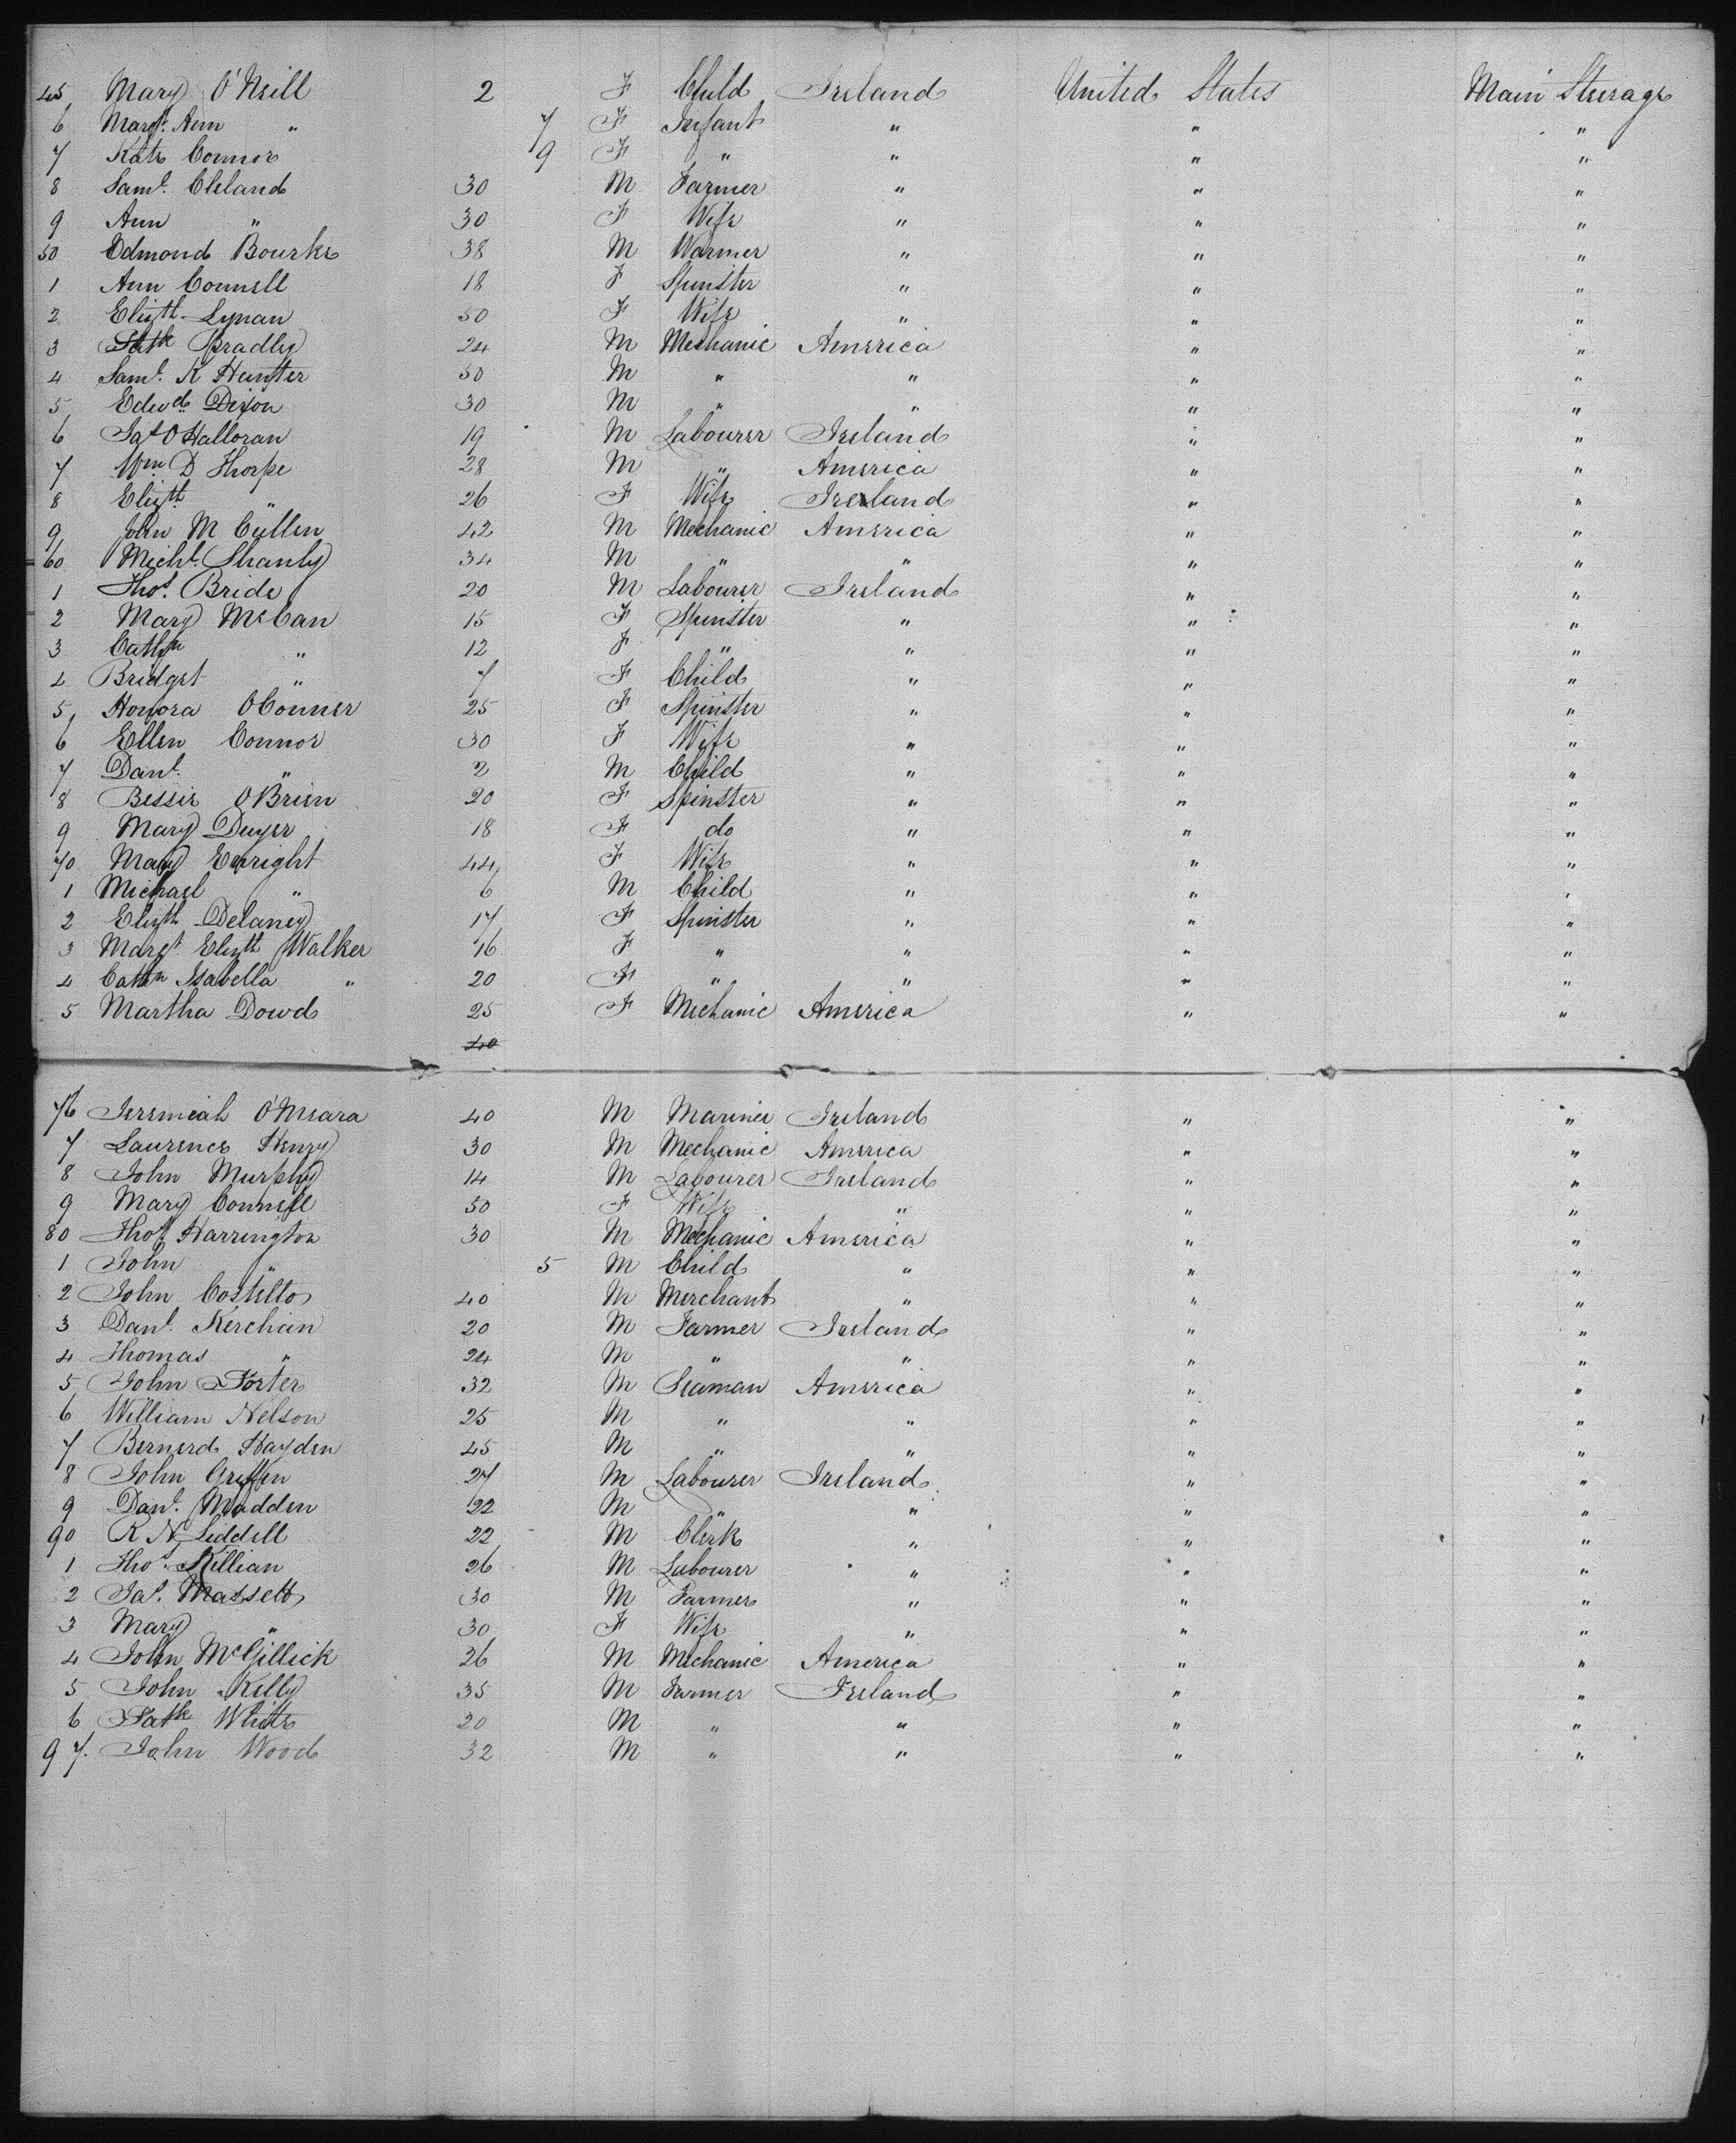 45 Mary O'Neill 2 F Child Ireland United States Main Steerage
6 Margt. Ann " 7 F Infant " " "
7 Kate Connor 9 F " " " "
8 Saml. Cleland 30 M Farmer " " "
9 Ann " 30 F Wife " " "
50 Edmond Bourke 38 M Warmer " " "
1 Ann Connell 18 F Spinster " " "
2 Elizth. Lynan 50 F Wife " " "
3 Patk Bradley 24 M Mechanic America " "
4 Saml. K Hunter 50 M " " " "
5 Edwd. Dixon 30 M " " " "
6 Jas O'Halloran 19 M Labourer Ireland " "
7 Wm D Thorpe 28 M " America " "
8 Elizth. " 26 F Wife Ireland " "
9 John M Cullen 42 M Mechanic America " "
60 Michl. Shanly 34 M " " " "
1 Thos. Bride 20 M Labourer Ireland " "
2 Mary McCan 15 F Spinster " " "
3 Cathn " 12 F " " " "
4 Bridget " 7 F Child " " "
5 Honora O'Conner 25 F Spinster " " "
6 Ellen Connor 30 F Wife " " "
7 Danl. " 2 M Child " " "
8 Bessie O'Brien 20 F Spinster " " "
9 Mary Dwyer 18 F do " " "
70 Mary Enright 44 F Wife " " "
1 Michael " 6 M Child " " "
2 Elizth Delaney 17 F Spinster " " "
3 Margt. Elizth Walker 16 F " " " "
4 Cathn Isabella " 20 F " " " "
5 Martha Dowd 25 F Mechanic America " "
40
76 Jeremiah O'Meara 40 M Mariner Ireland " "
7 Laurence Henry 30 M Mechanic America " "
8 John Murphy 14 M Labourer Ireland " "
9 Mary Connell 50 F Wife " " "
80 Thos. Harrington 30 M Mechanic America " "
1 John " 5 M Child " " "
2 John Costello 40 M Merchant " " "
3 Danl. Kerchan 20 M Farmer Ireland " "
4 Thomas " 24 M " " " "
5 John Porter 32 M Seaman America " "
6 William Nelson 25 M " " " "
7 Bernerd Hayden 45 M " " " "
8 John Griffin 27 M Labourer Ireland " "
9 Danl. Madden 22 M " " " "
90 R N Liddell 22 M Clerk " " "
1 Thos. Killian 26 M Labourer " " "
2 Jas. Massett 30 M Farmer " " "
3 Mary " 30 F Wife " " "
4 John McGillick 26 M Mechanic America " "
5 John Kelly 35 M Farmer Ireland " "
6 Patk White 20 M " " " "
97. John Wood 32 M " " " "